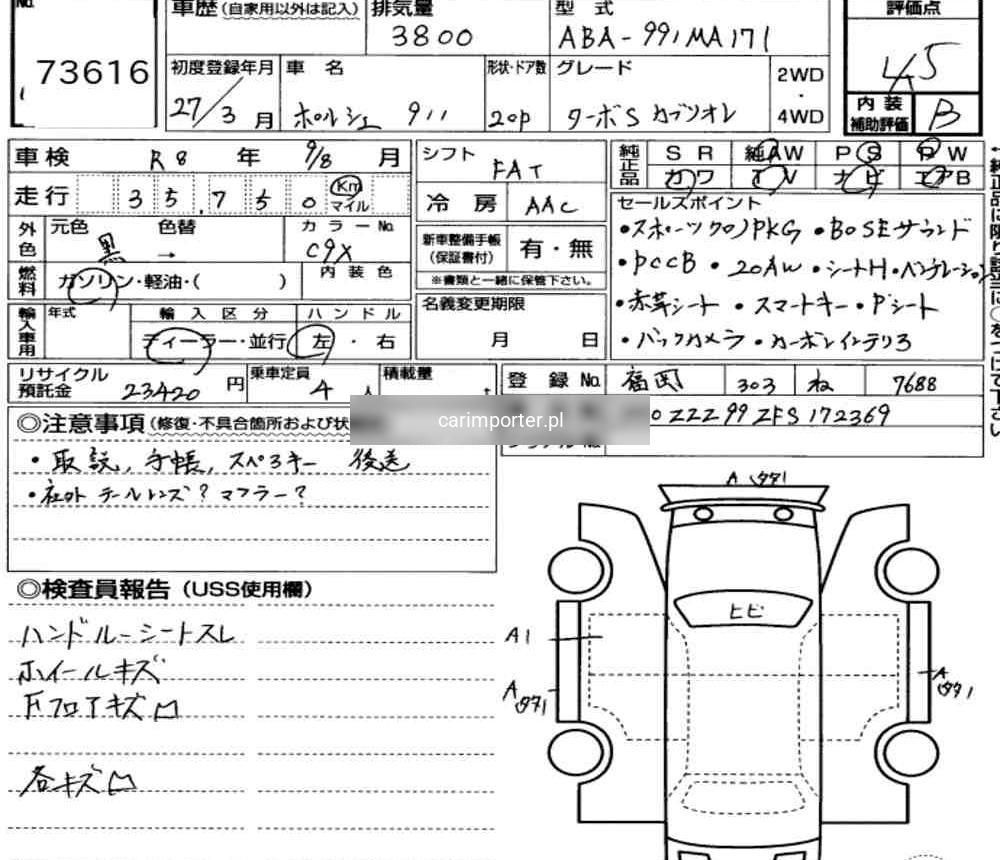 No.
73616
車歴 (自家用以外は記入)
排気量
3800
型 式
ABA-991MA171
評価点
4.5
初度登録年月
27/3 月
車 名
ポルシェ 911
形状・ドア数
2Dp
グレード
ターボS カブリオレ
2WD
・
4WD
内 装
補助評価
B
車検 R8 年 9/8 月
走行 35,750 Km マイル
シフト
FAT
冷 房 AAC
純正品
SR 純AW PS PW
カワ TV ナビ エアB
外色
元色 黒 色替 →
カラーNo.
C9X
燃料
ガソリン・軽油・( )
内装色
輸入車用
年式
輸入区分
ディーラー・並行
ハンドル
左・右
新車整備手帳
(保証書付)
有・無
※書類と一緒に保管下さい。
名義変更期限
月 日
セールスポイント
・スポーツクロノPKG ・BOSEサウンド
・PCCB ・20AW ・シートH ・ベンチレーション
・赤革シート ・スマートキー ・Pシート
・バックカメラ ・カーボンインテリア
リサイクル
預託金
23420 円
乗車定員
4 人
積載量
t
登 録 No. 福岡 303 ね 7688
0ZZZ99ZFS172369
carimporter.pl
◎注意事項 (修復・不具合箇所および状
・取説, 手帳, スペアキー 後送
・社外 テールレンズ? マフラー?
◎検査員報告 (USS使用欄)
ハンドルーシートスレ
ホイールキズ
下フロアキズ凹
各キズ凹
A
ヒビ
A1
A
A